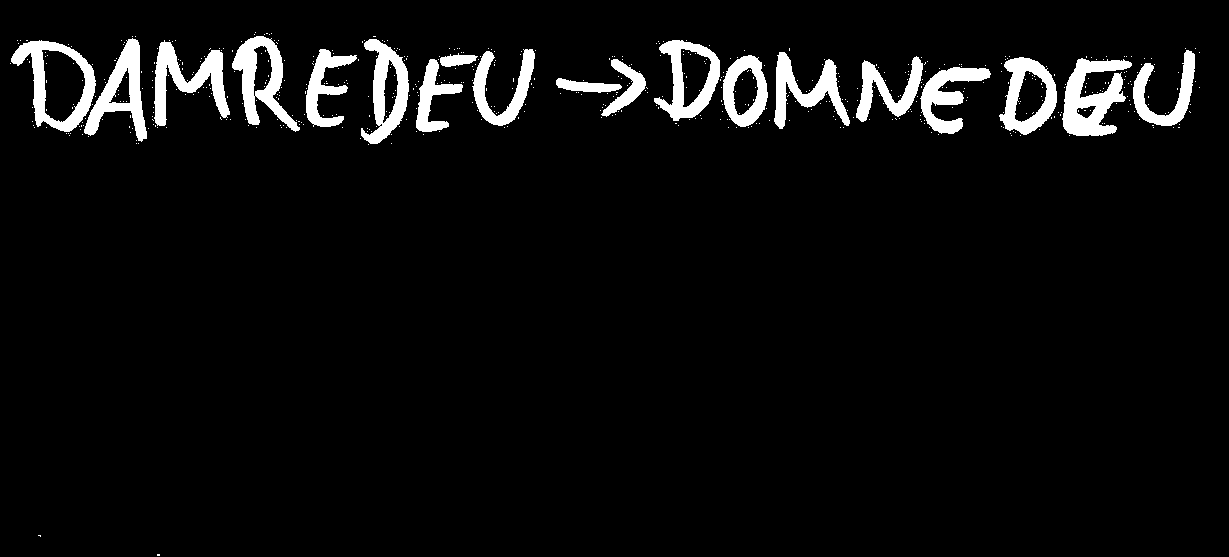 DAMREDEU → DOMNEDEU